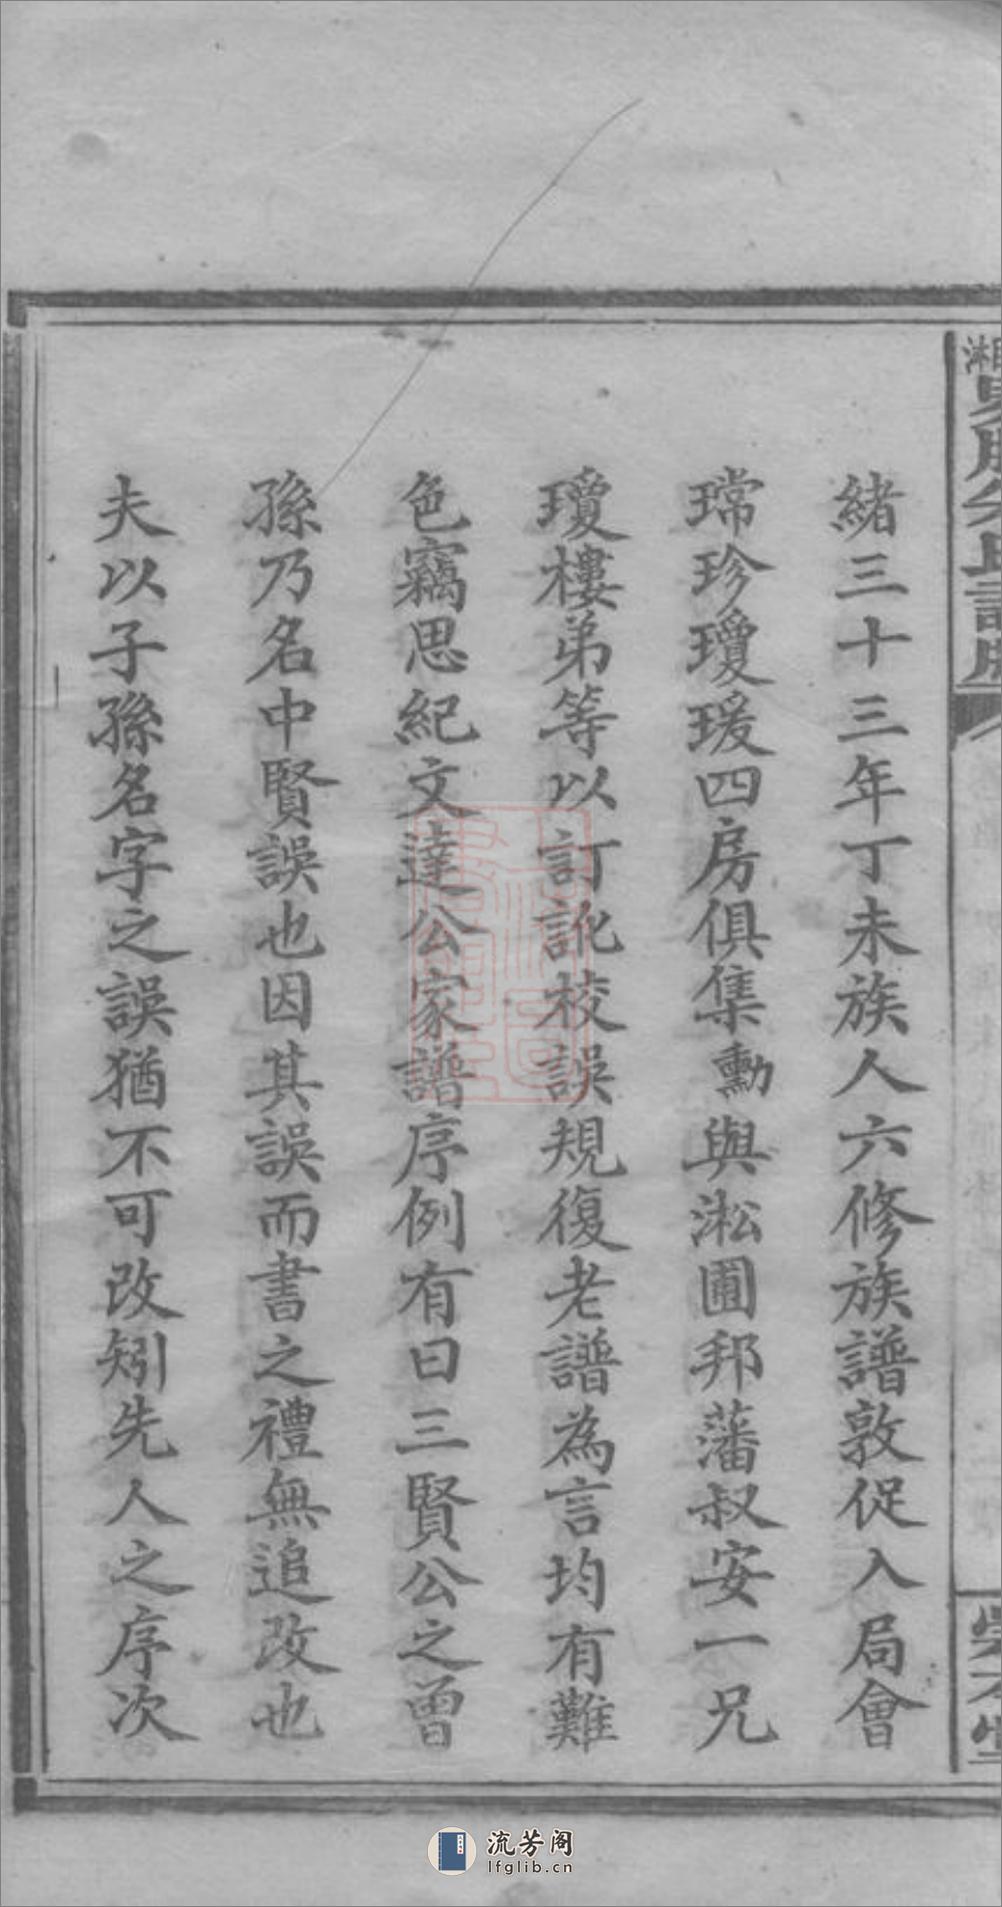 緒三十三年丁未族人六修族譜敦促入局會
瑺珍瓊瑗四房俱集勳與淞圃邦藩叔安一兄
瓊樓弟等以訂訛校誤規復老譜為言均有難
色竊思紀文達公家譜序例有曰三賢公之曾
孫乃名中賢誤也因其誤而書之禮無追改也
夫以子孫名字之誤猶不可改矧先人之序次
流芳阁
lfglib.cn